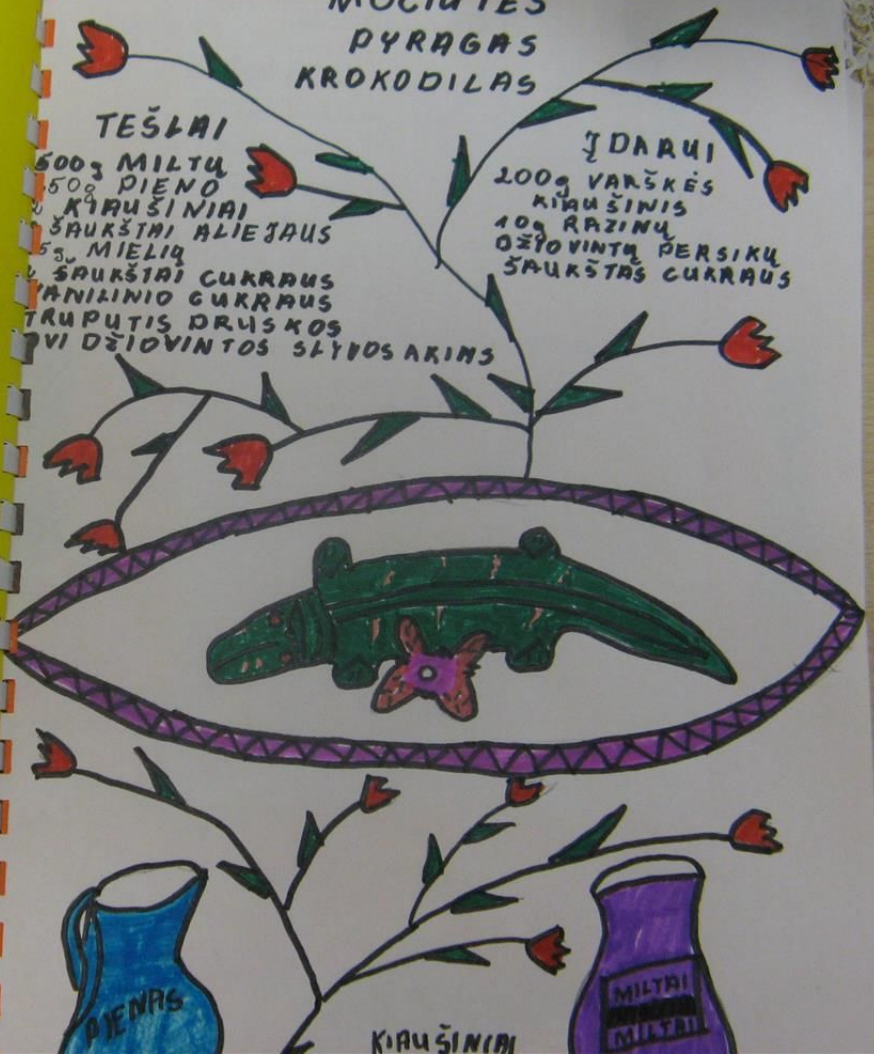 MOČIUTĖS
PYRAGAS
KROKODILAS
TEŠLAI
500g MILTŲ
50g PIENO
KIAUŠINIAI
ŠAUKŠTAI ALIEJAUS
5g MIELIŲ
ŠAUKŠTAI CUKRAUS
VANILINIO CUKRAUS
TRUPUTIS DRUSKOS
DVI DŽIOVINTOS SLYVOS AKIMS
ĮDARUI
200g VARŠKĖS
KIAUŠINIS
10g RAZINŲ
DŽIOVINTŲ PERSIKŲ
ŠAUKŠTAS CUKRAUS
PIENAS
KIAUŠINIAI
MILTAI
MILTAI